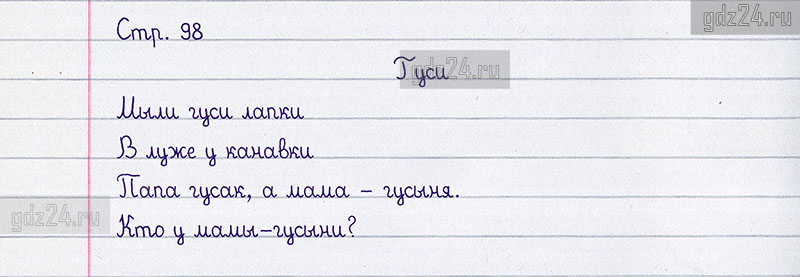 gdz24.ru
Стр. 98
Гуси
gdz24.ru
Мыли гуси лапки
В луже у канавки
Папа гусак, а мама – гусыня.
gdz24.ru
Кто у мамы-гусыни?